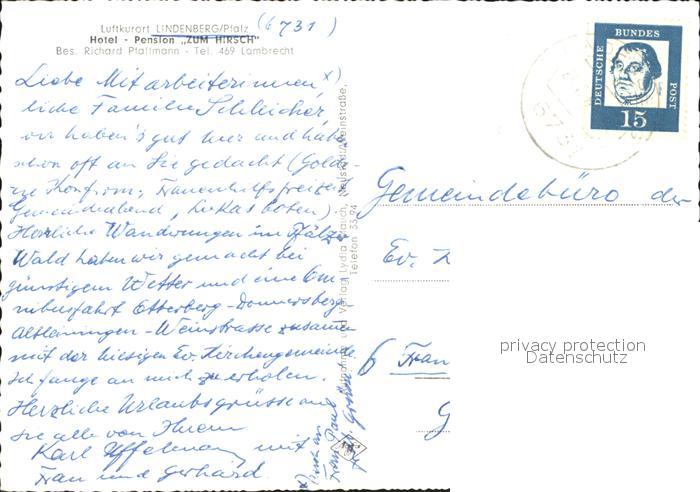 Luftkurort LINDENBERG/Pfalz (6731)
Hotel - Pension „ZUM HIRSCH“
Bes. Richard Plattmann - Tel. 469 Lambrecht
Liebe Mitarbeiterinnen x),
liebe Familie Schleicher,
wir haben's gut hier und haben
schon oft an Sie gedacht (Golde-
ne Konfirm., Frauenhilfsfreizeit
Gemeindeabend, Lukasboten).
Herrliche Wanderungen im Pfälzer
Wald haben wir gemacht bei
günstigem Wetter und eine Om-
nibusfahrt Otterberg - Donnersberg -
Altleiningen - Weinstrasse zusammen
mit der hiesigen Ev. Kirchengemeinde.
Ich fange an mich zu erholen.
Herzliche Urlaubsgrüsse an
Sie alle von Ihrem
Karl Uffelmann mit
Frau und Gerhard
x) Auch an
Frau Paul
Verlag Lydia
Neustadt/Weinstraße,
Telefon 33 94
DEUTSCHE BUNDES POST
15
6731
Gemeindebüro der
Ev. L
6 Fran
G
privacy protection
Datenschutz